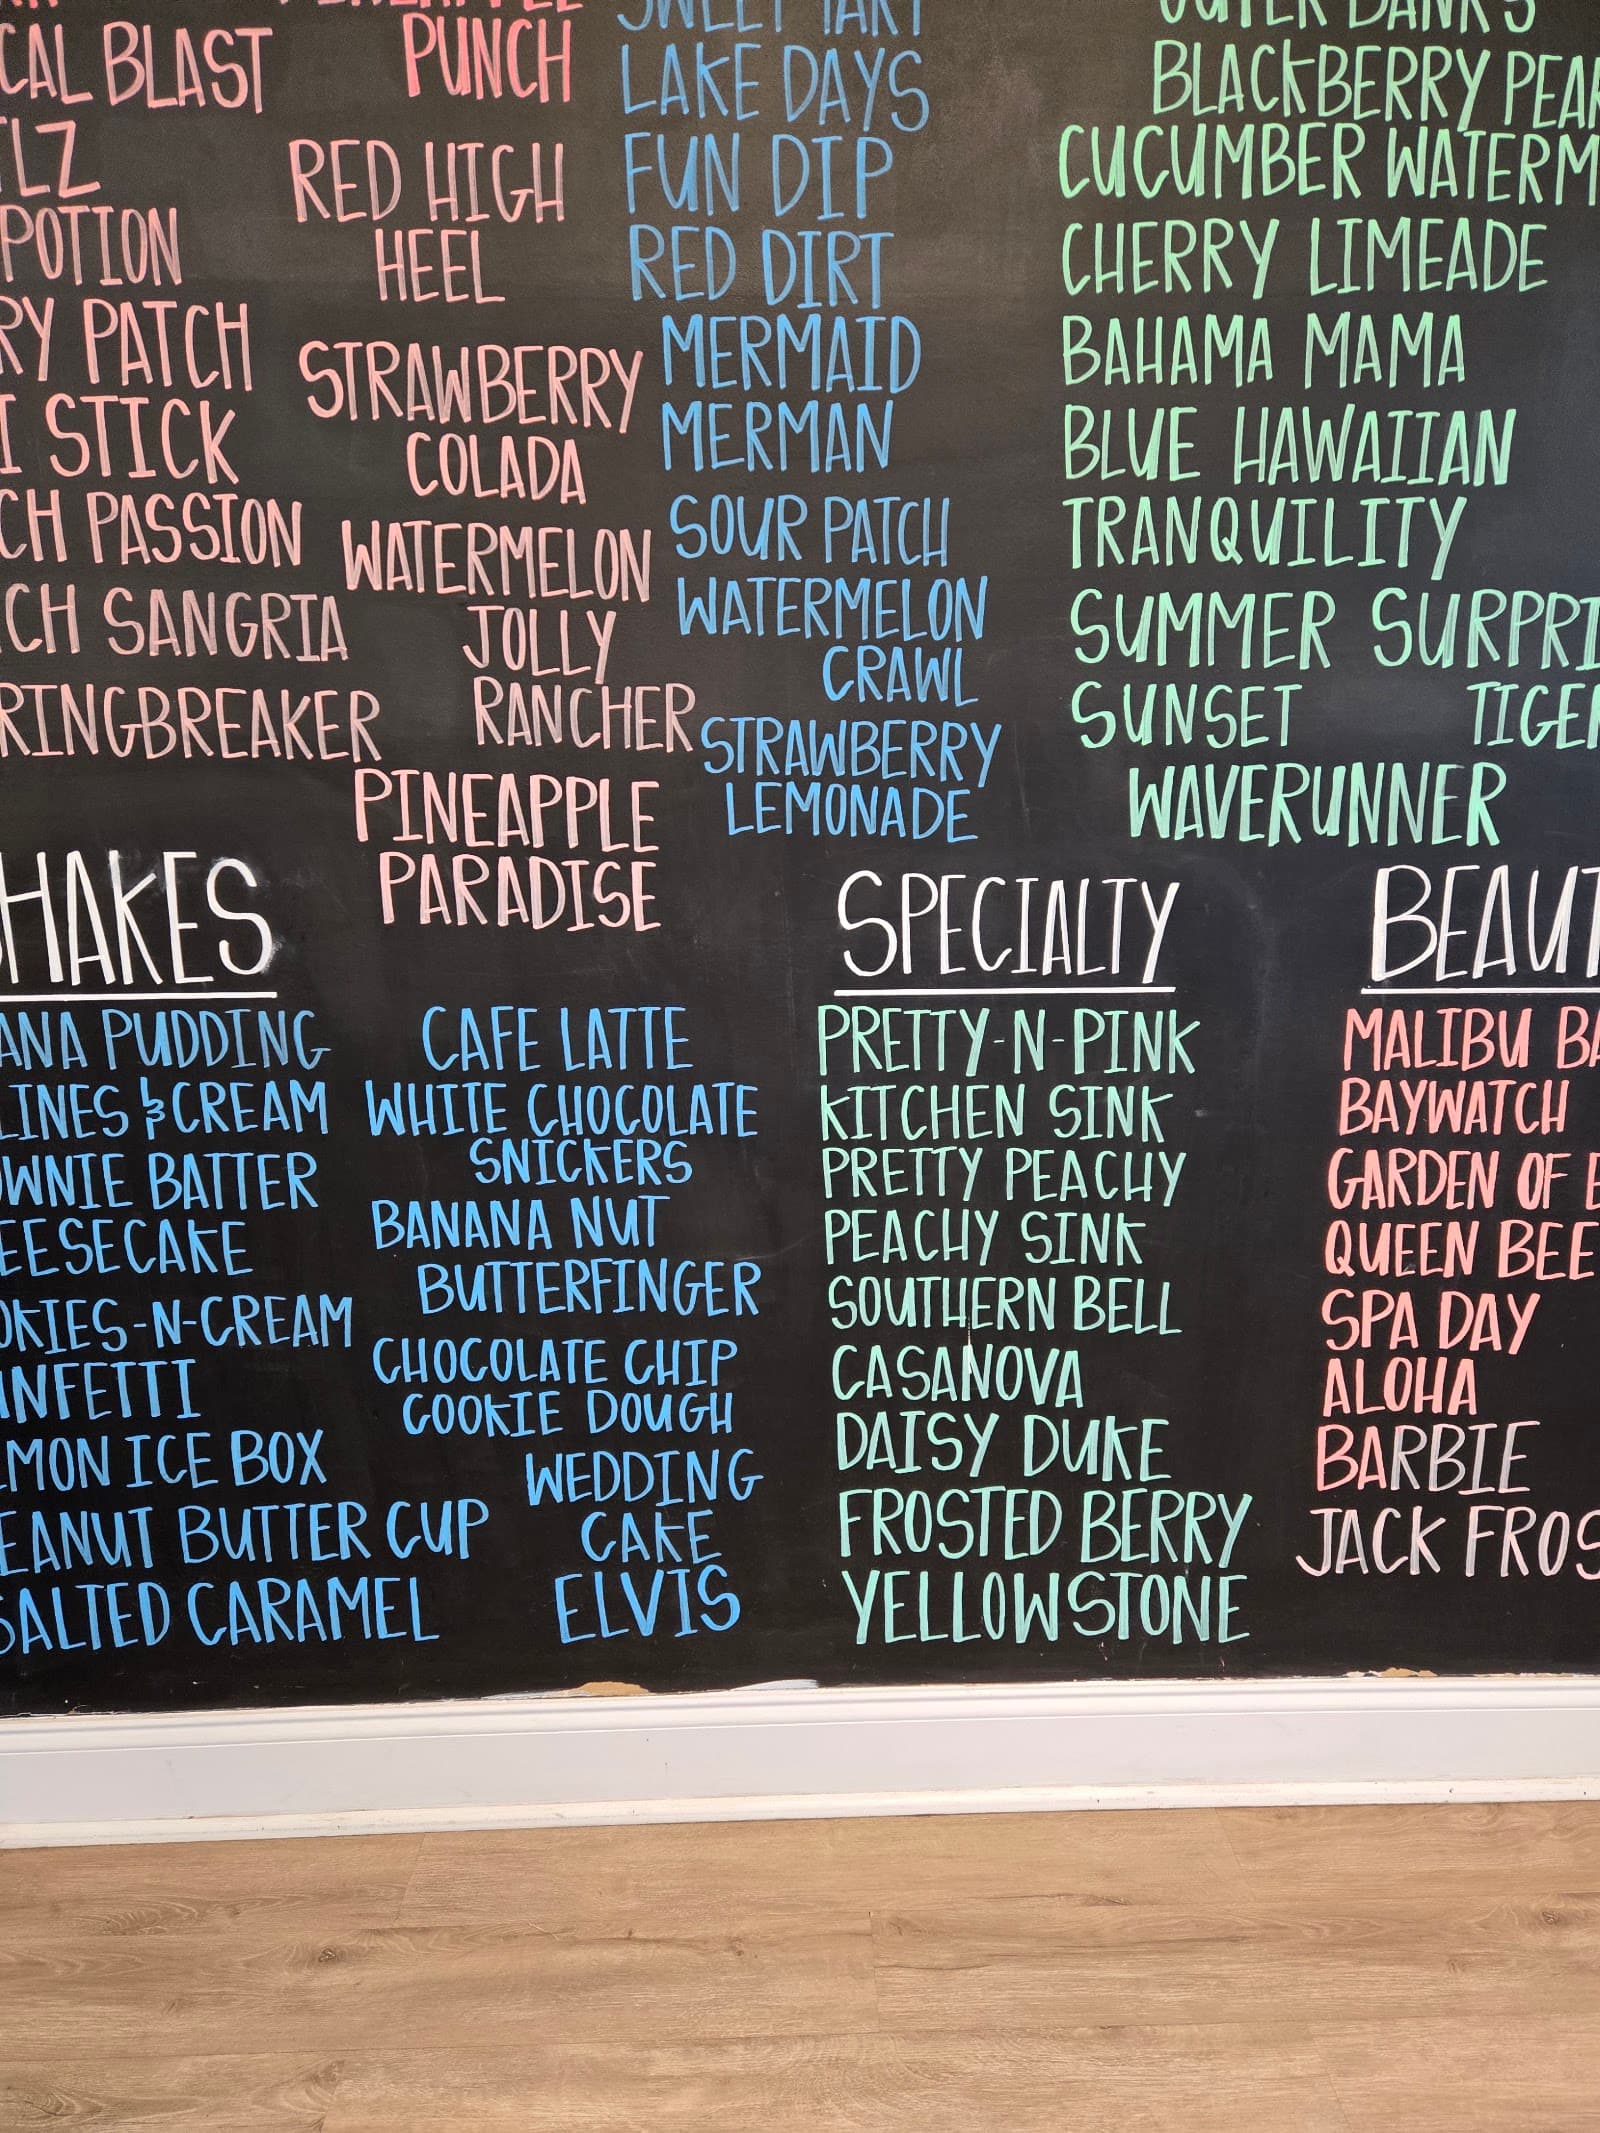 PUNCH
BLAST
POTION
PATCH
STICK
PASSION
SANGRIA
RED HIGH
HEEL
STRAWBERRY
COLADA
WATERMELON
JOLLY
RANCHER
PINEAPPLE
PARADISE
LAKE DAYS
FUN DIP
RED DIRT
MERMAID
MERMAN
SOUR PATCH
WATERMELON
CRAWL
STRAWBERRY
LEMONADE
BLACKBERRY
CUCUMBER
CHERRY LIMEADE
BAHAMA MAMA
BLUE HAWAIIAN
TRANQUILITY
SUMMER
SUNSET
WAVERUNNER
HAKES
PUDDING
& CREAM
BATTER
EESECAKE
-N-CREAM
NFETTI
MON ICE BOX
EANUT BUTTER CUP
SALTED CARAMEL
CAFE LATTE
WHITE CHOCOLATE
SNICKERS
BANANA NUT
BUTTERFINGER
CHOCOLATE CHIP
COOKIE DOUGH
WEDDING
CAKE
ELVIS
SPECIALTY
PRETTY-N-PINK
KITCHEN SINK
PRETTY PEACHY
PEACHY SINK
SOUTHERN BELL
CASANOVA
DAISY DUKE
FROSTED BERRY
YELLOWSTONE
BEAUT
MALIBU BA
BAYWATCH
GARDEN OF
QUEEN BEE
SPA DAY
ALOHA
BARBIE
JACK FROS